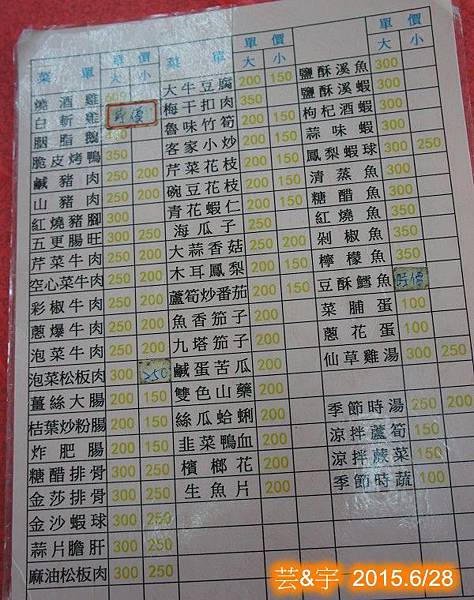 菜單 單價 大 小
燒酒雞 600
白斬雞 時價
胭脂鵝
脆皮烤鴨 350
鹹豬肉 250 200
山豬肉 250 200
紅燒豬腳 300
五更腸旺 300 250
芹菜牛肉 250 200
空心菜牛肉 250 200
彩椒牛肉 250 200
蔥爆牛肉 250 200
泡菜牛肉 250 200
泡菜松板肉 300 250
薑絲大腸 200 150
桔葉炒粉腸 200 150
炸肥腸 200 150
糖醋排骨 300 250
金莎排骨 300 250
金沙蝦球 300 250
蒜片膽肝 300 250
麻油松板肉 300 250
菜單 單價 大 小
大牛豆腐 200 150
梅干扣肉 350
魯味竹筍 200 150
客家小炒 200 150
芹菜花枝 200 150
碗豆花枝 200 150
青花蝦仁 200 150
海瓜子 200
大蒜香菇 250 200
木耳鳳梨 200 150
蘆筍炒番茄 200 150
魚香茄子 200
九塔茄子 200
鹹蛋苦瓜 200
雙色山藥 200
絲瓜蛤蜊 200
韭菜鴨血 200
檳榔花 200
生魚片 200
單價 大 小
鹽酥溪魚 300
鹽酥溪蝦 300
枸杞酒蝦 300
蒜味蝦 300
鳳梨蝦球 300 250
清蒸魚 350
糖醋魚 350
紅燒魚 350
剁椒魚 350
檸檬魚 350
豆酥鱈魚 時價
菜脯蛋 100
蔥花蛋 100
仙草雞湯 300 250
季節時湯 250 200
涼拌蘆筍 200 150
涼拌蕨菜 150
季節時蔬 100
芸&宇 2015.6/28